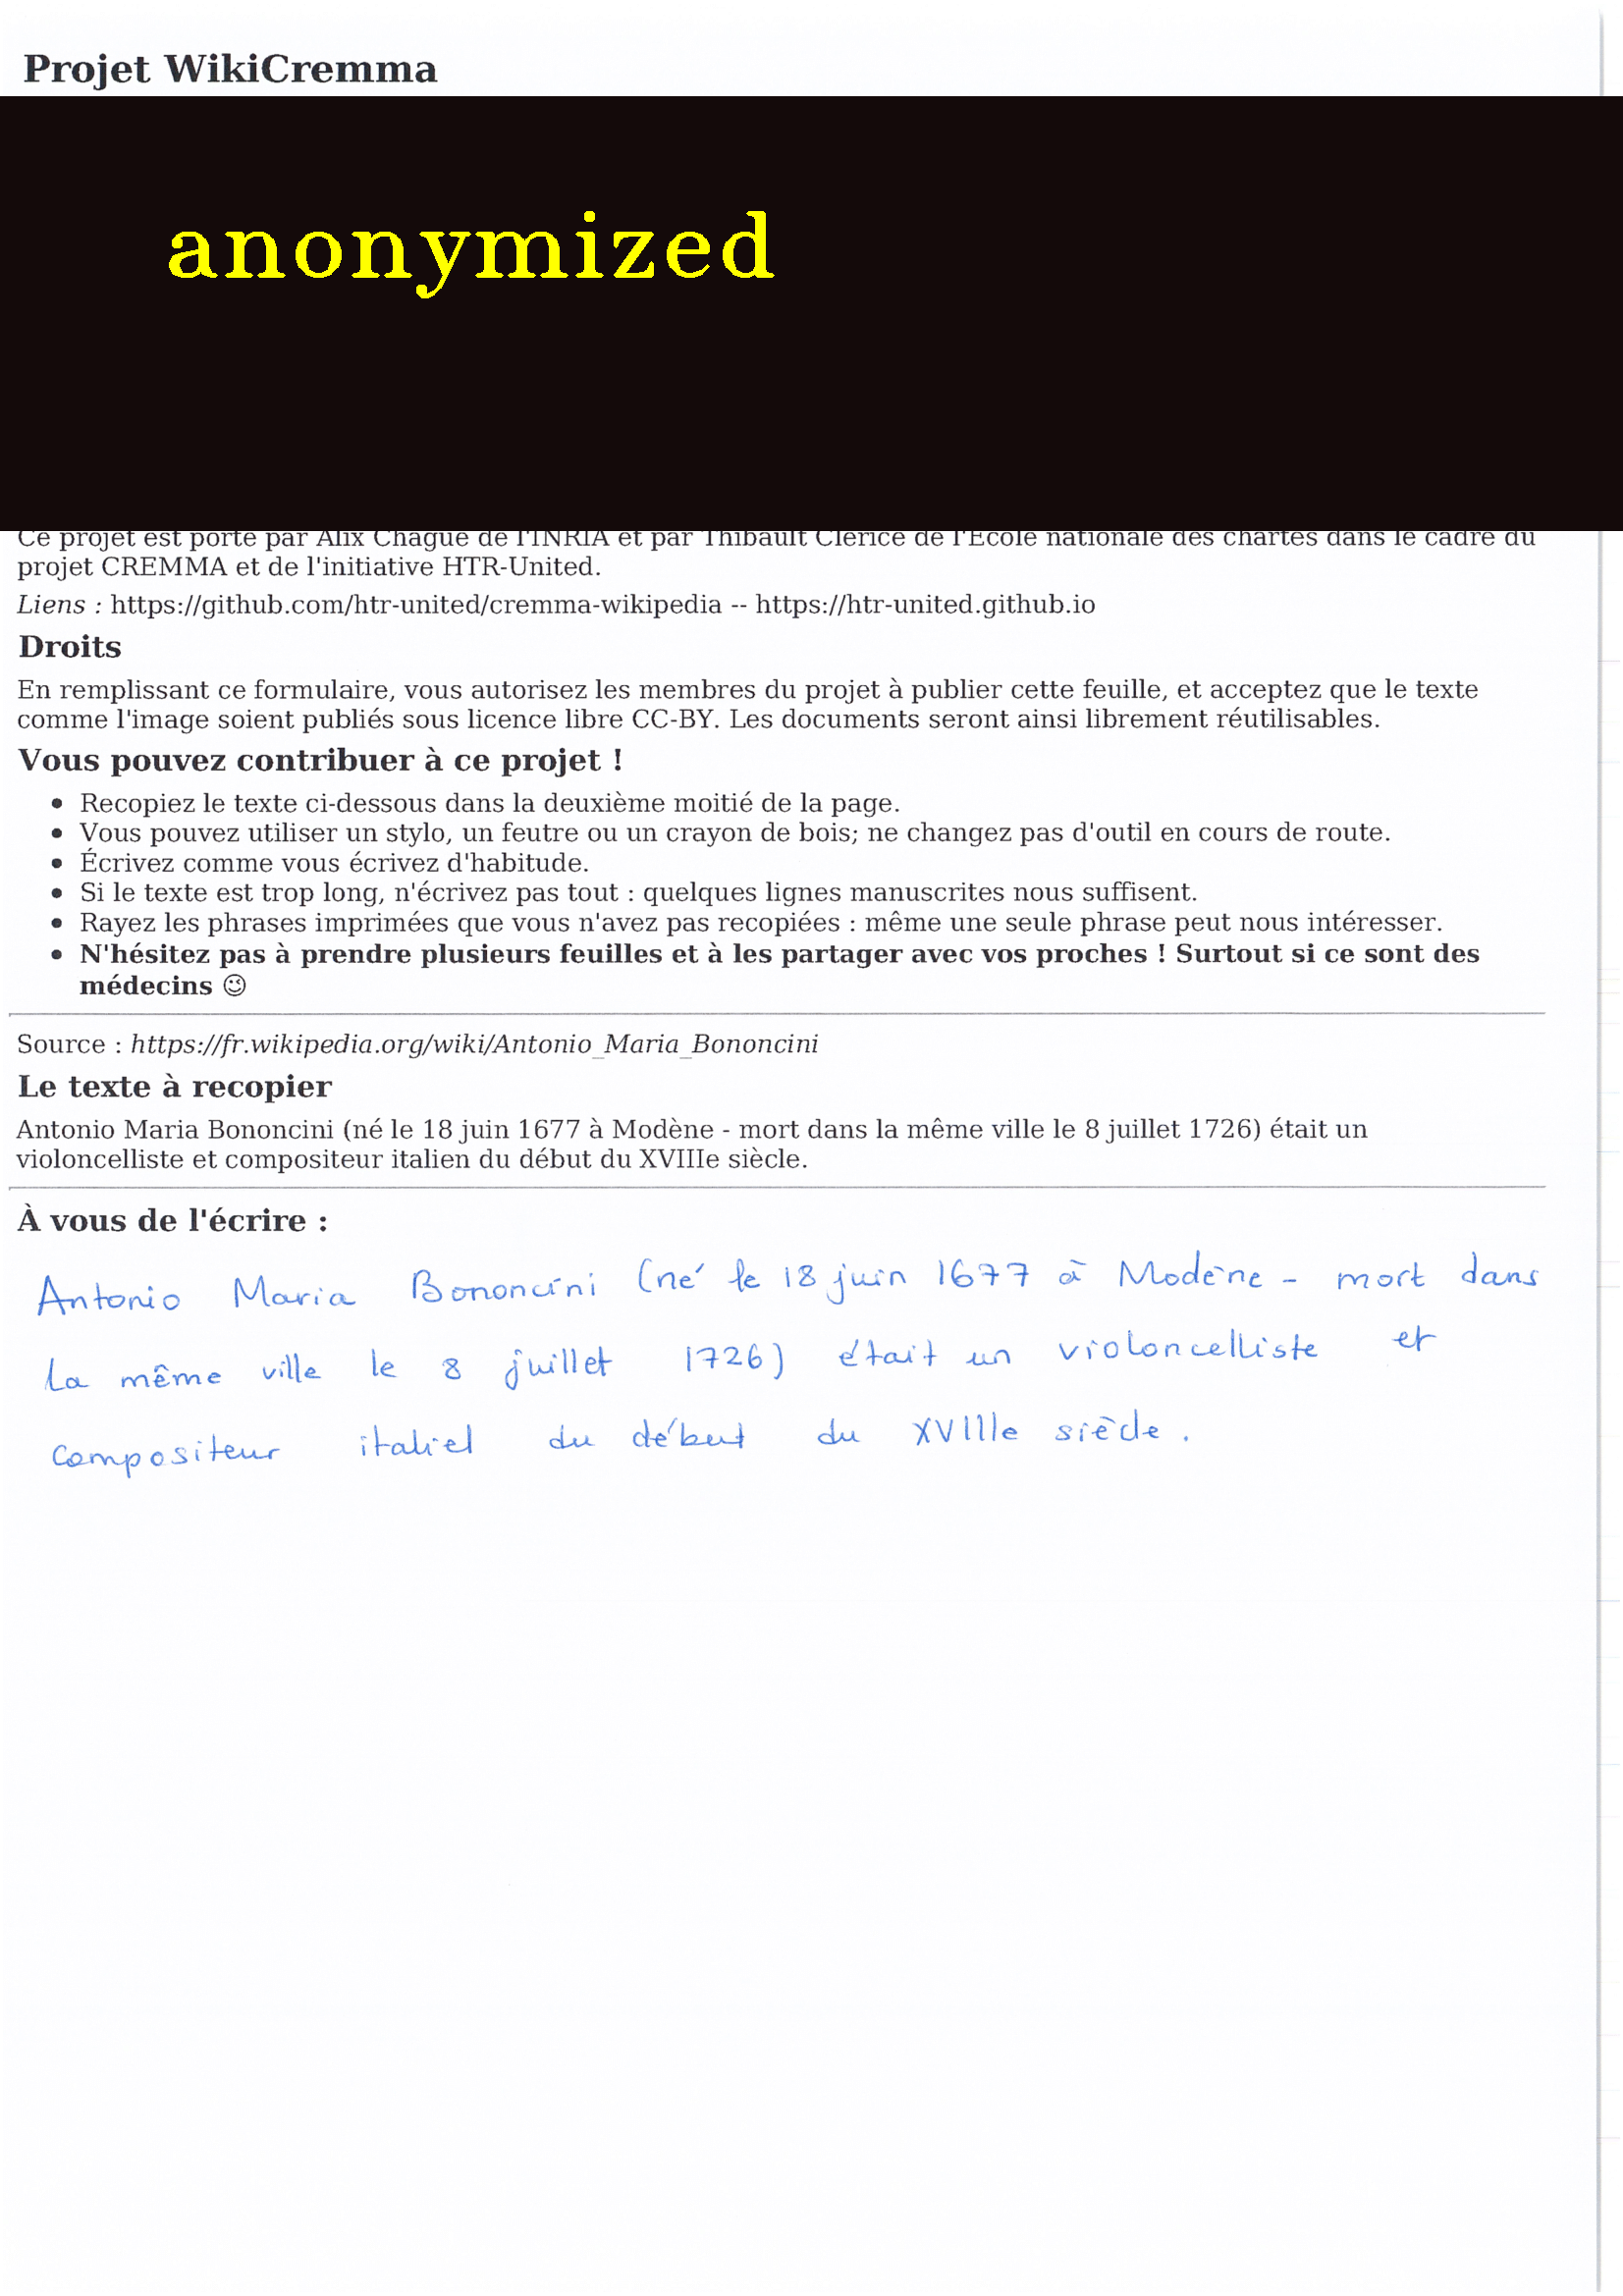 Projet WikiCremma
anonymized
Ce projet est porté par Alix Chagué de l'INRIA et par Thibault Clérice de l'École nationale des chartes dans le cadre du
projet CREMMA et de l'initiative HTR-United.
Liens : https://github.com/htr-united/cremma-wikipedia -- https://htr-united.github.io
Droits
En remplissant ce formulaire, vous autorisez les membres du projet à publier cette feuille, et acceptez que le texte
comme l'image soient publiés sous licence libre CC-BY. Les documents seront ainsi librement réutilisables.
Vous pouvez contribuer à ce projet !
• Recopiez le texte ci-dessous dans la deuxième moitié de la page.
• Vous pouvez utiliser un stylo, un feutre ou un crayon de bois; ne changez pas d'outil en cours de route.
• Écrivez comme vous écrivez d'habitude.
• Si le texte est trop long, n'écrivez pas tout : quelques lignes manuscrites nous suffisent.
• Rayez les phrases imprimées que vous n'avez pas recopiées : même une seule phrase peut nous intéresser.
• N'hésitez pas à prendre plusieurs feuilles et à les partager avec vos proches ! Surtout si ce sont des
médecins 😉
Source : https://fr.wikipedia.org/wiki/Antonio_Maria_Bononcini
Le texte à recopier
Antonio Maria Bononcini (né le 18 juin 1677 à Modène - mort dans la même ville le 8 juillet 1726) était un
violoncelliste et compositeur italien du début du XVIIIe siècle.
À vous de l'écrire :
Antonio Maria Bononcini (né le 18 juin 1677 à Modène - mort dans
la même ville le 8 juillet 1726) était un violoncelliste et
compositeur italiel du début du XVIIIe siècle.